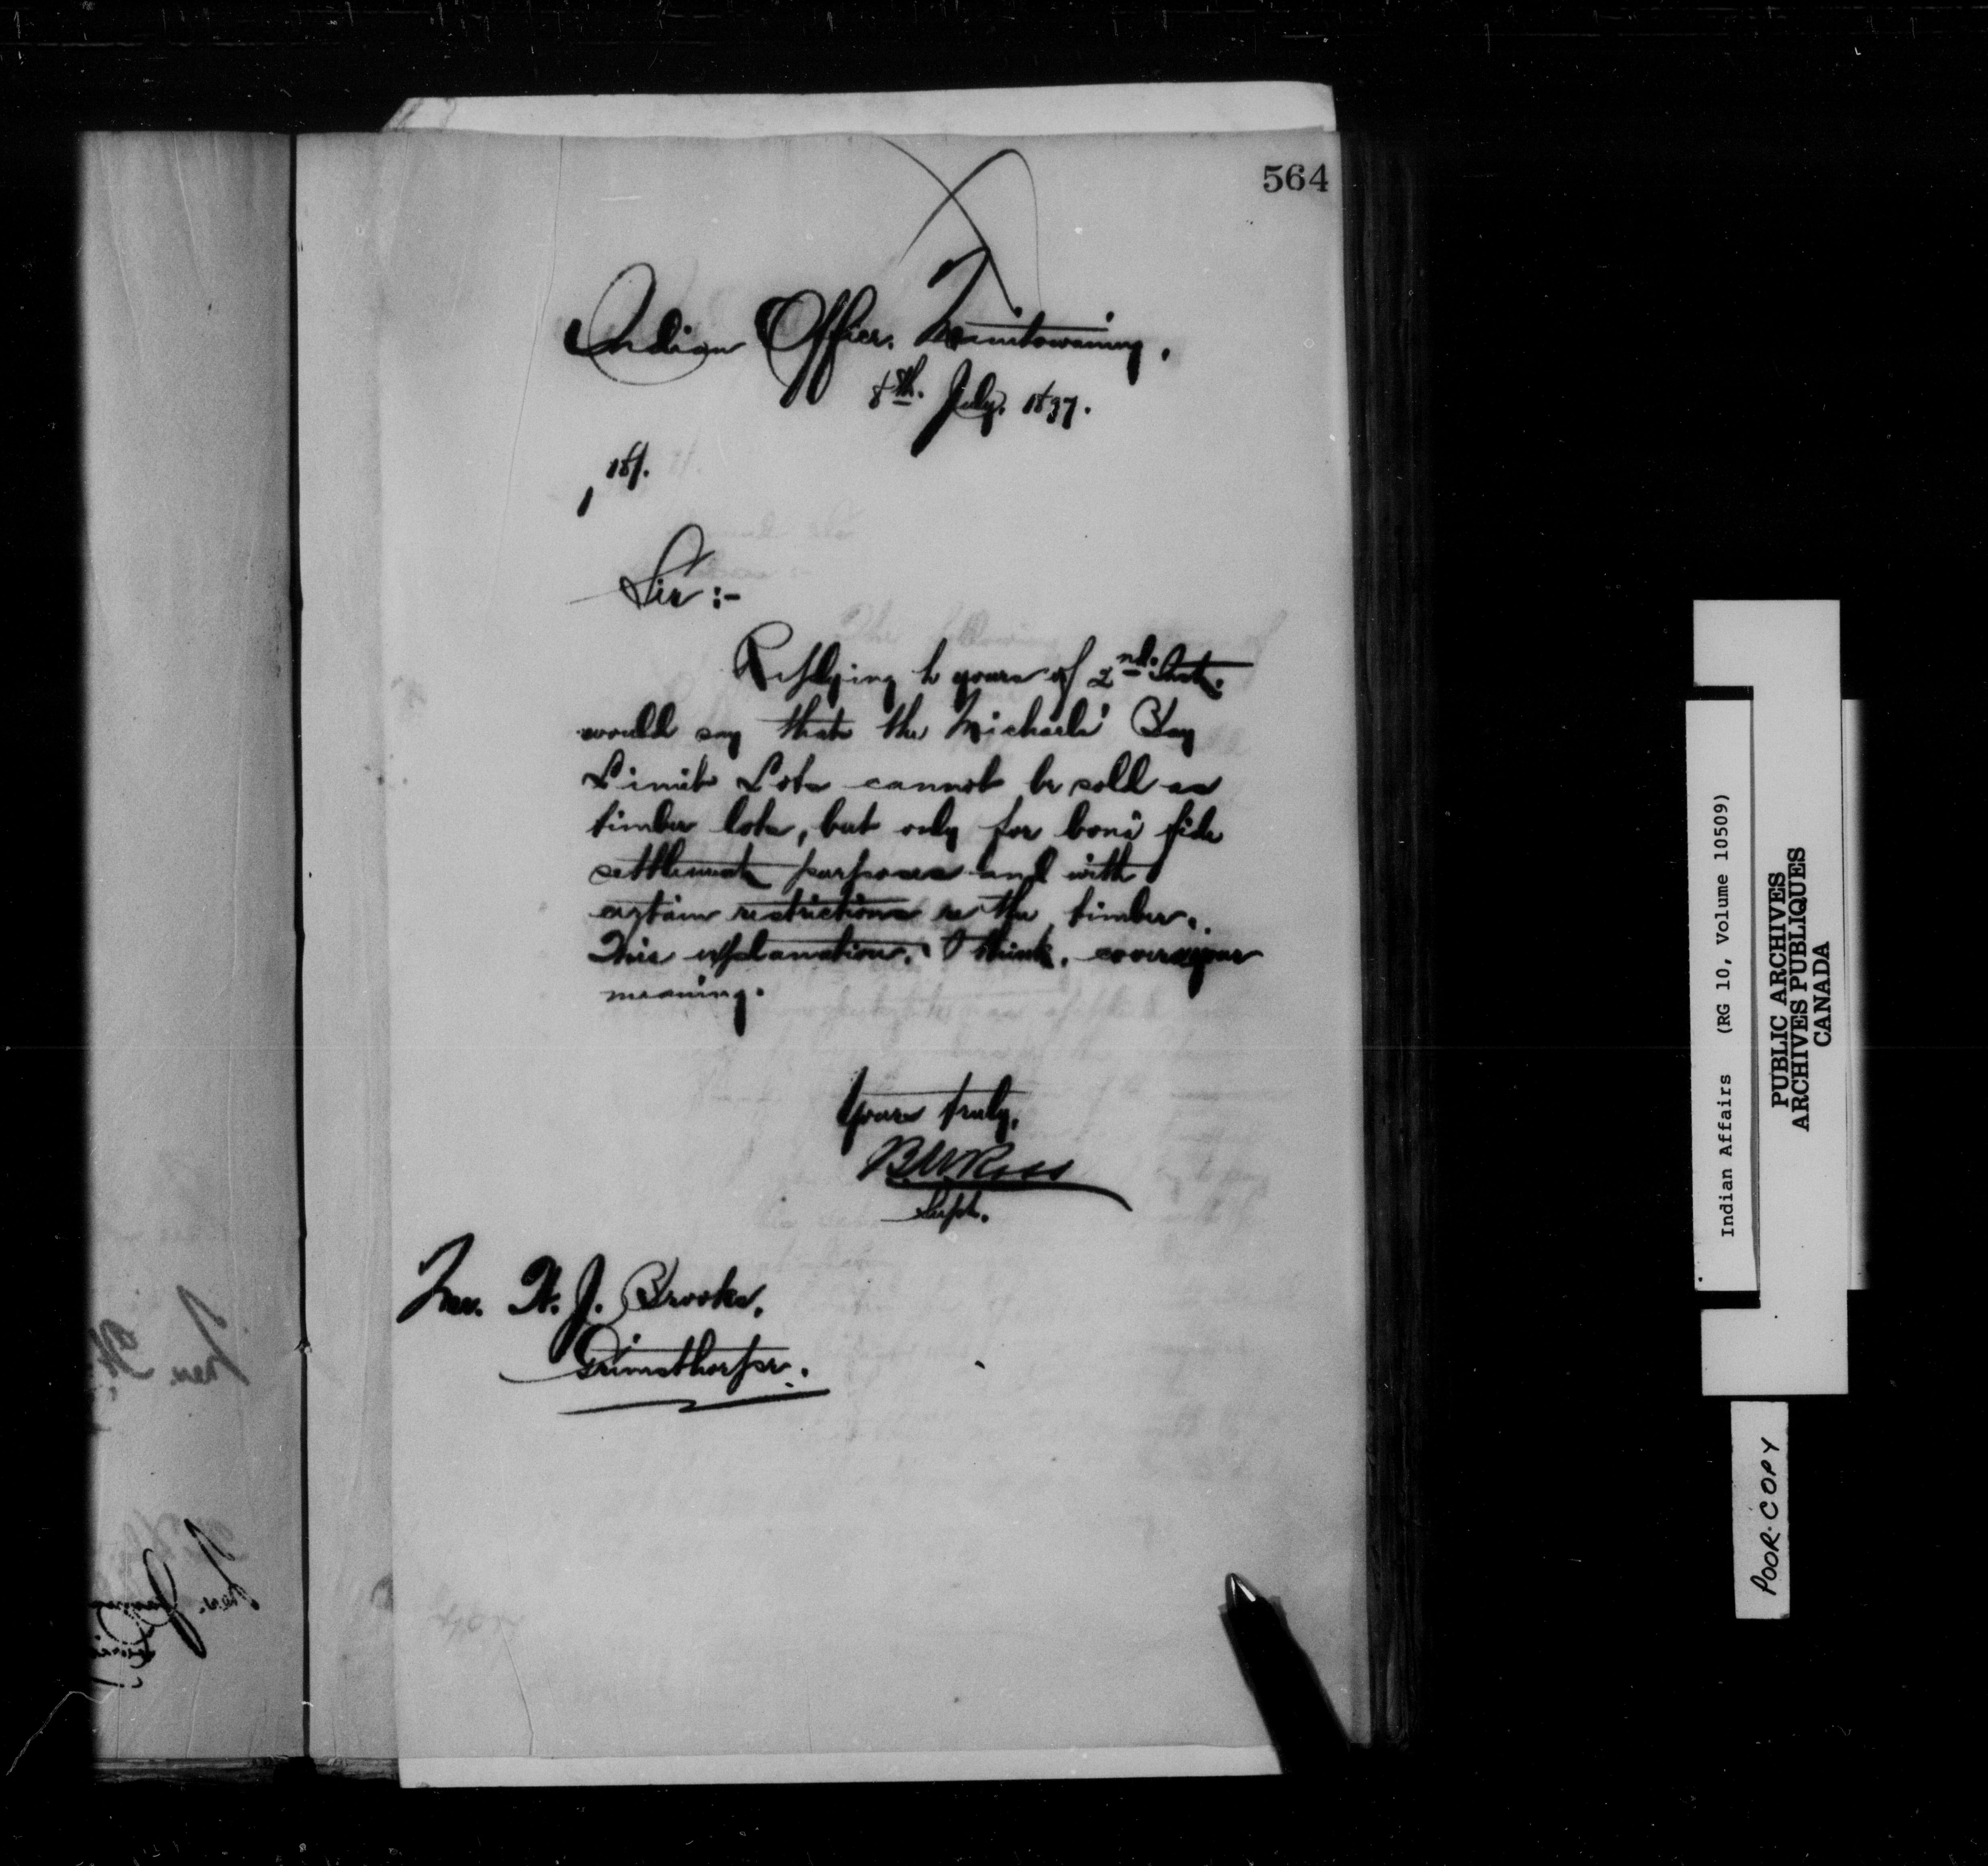 564
Indian Office, Manitowaning,
8th. July, 1897.
181.
Sir :-
Replying to yours of 2nd. Inst.
would say that the Michaels' Bay
Limit Lots cannot be sold as
timber lots, but only for bonâ fide
settlement purposes and with
certain restrictions re the timber.
This explanation, I think, covers your
meaning.
Yours truly,
BWRoss
Supt.
Mr. H. J. Brooks,
Grimsthorpe.
Indian Affairs (RG 10, Volume 10509)
PUBLIC ARCHIVES
ARCHIVES PUBLIQUES
CANADA
POOR COPY